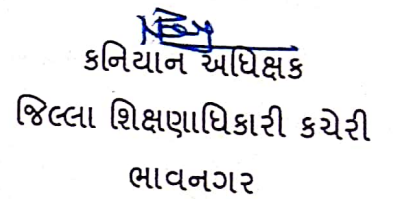 કનિયાન અધિક્ષક
જિલ્લા શિક્ષણાધિકારી કચેરી
ભાવનગર